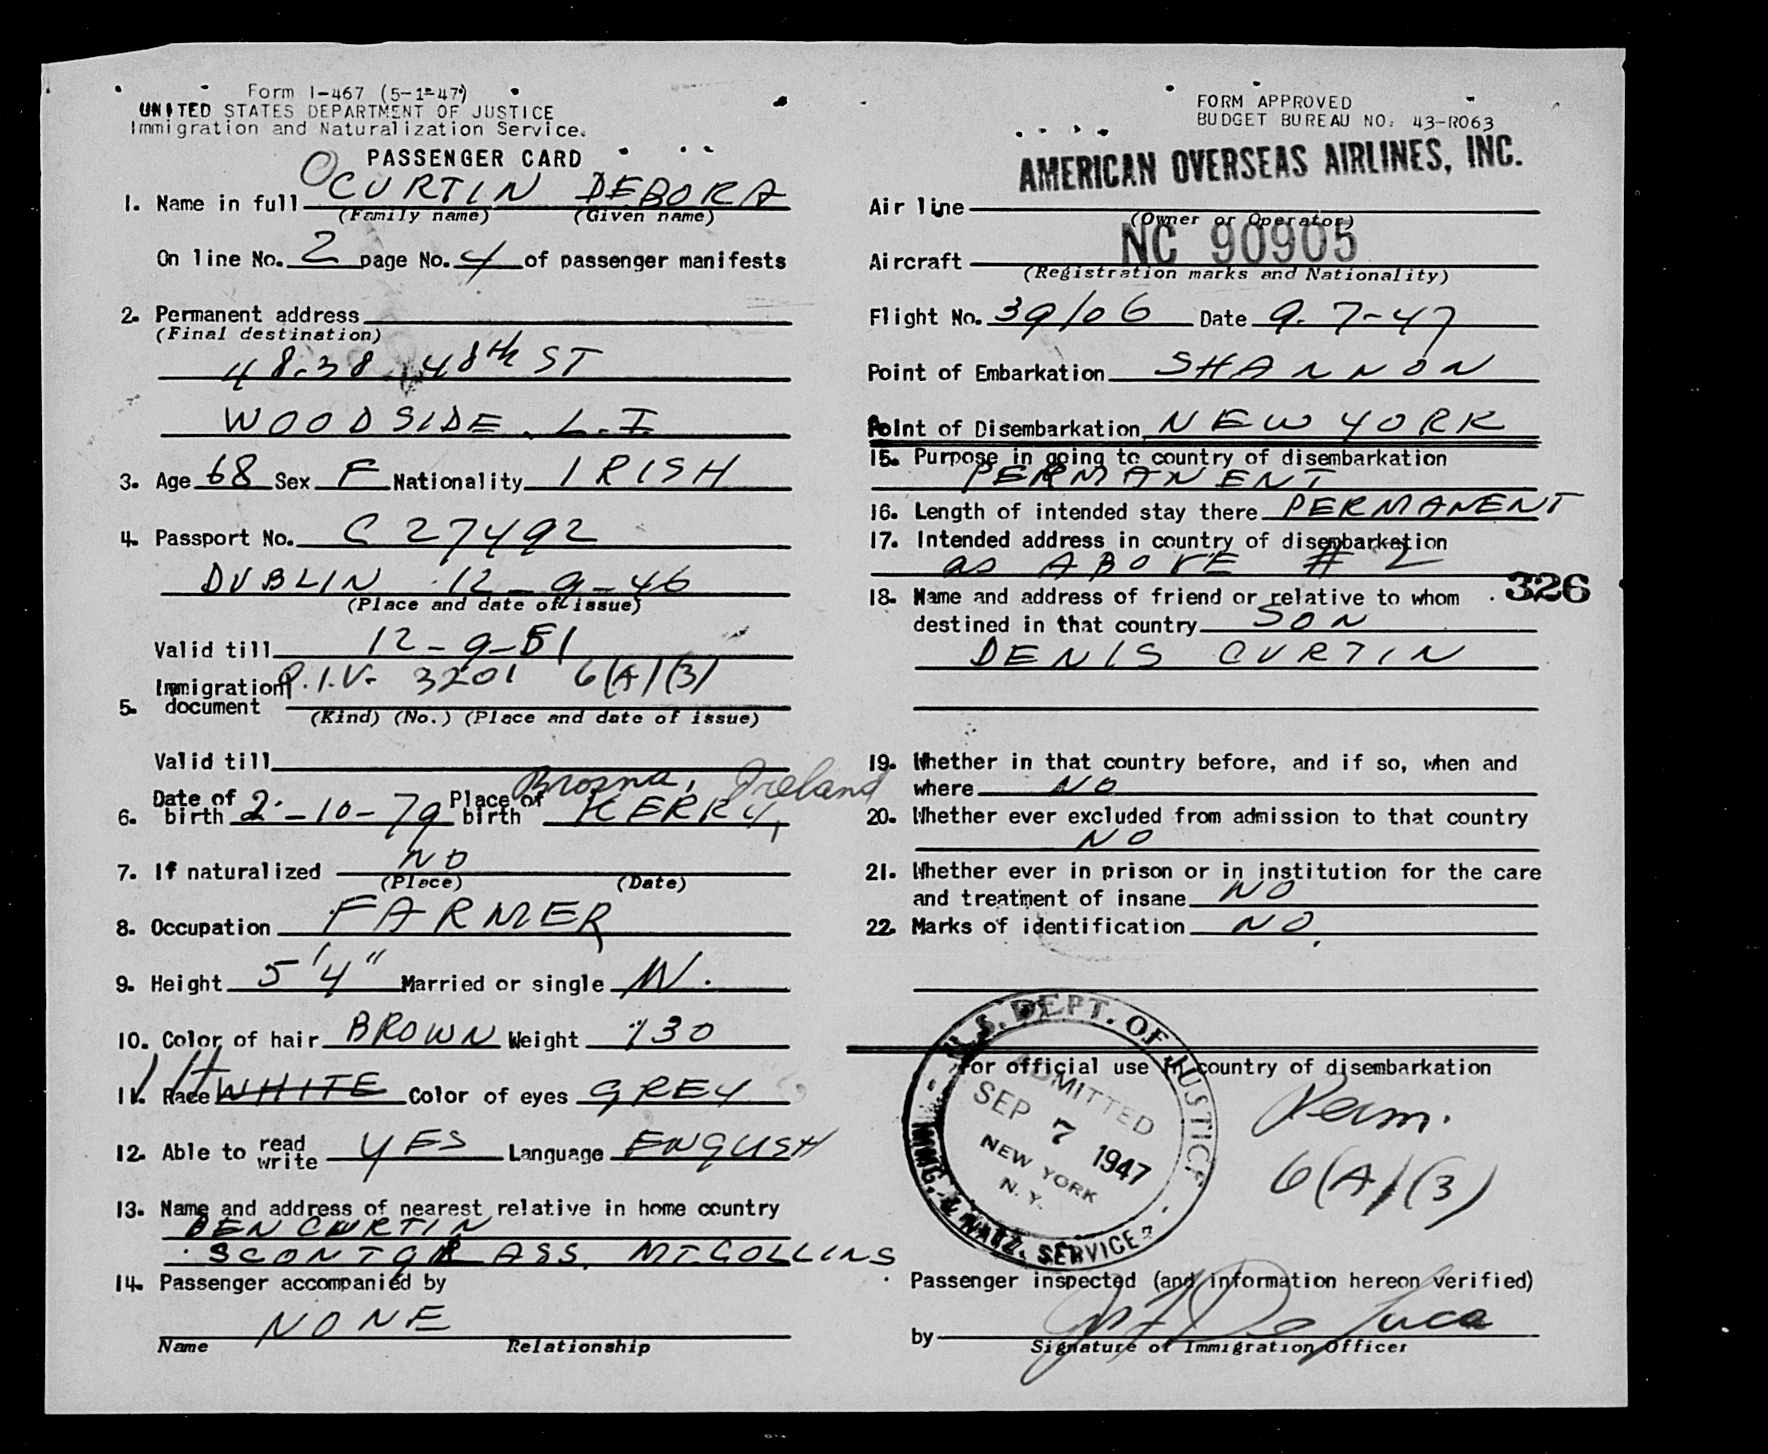 Form I-467 (5-1-47)
UNITED STATES DEPARTMENT OF JUSTICE
Immigration and Naturalization Service.
PASSENGER CARD
1. Name in full CURTIN DEBORA
(Family name) (Given name)
On line No. 2 page No. 4 of passenger manifests
2. Permanent address
(Final destination)
48-38 48th ST
WOODSIDE L.I.
3. Age 68 Sex F Nationality IRISH
4. Passport No. C 27492
DUBLIN 12-9-46
(Place and date of issue)
Valid till 12-9-51
5. Immigration document P.I.V. 3201 6(A)(3)
(Kind) (No.) (Place and date of issue)
Valid till
Brosna, Ireland
6. Date of birth 2-10-79 Place of birth KERRY,
7. If naturalized NO
(Place) (Date)
8. Occupation FARMER
9. Height 5'4" Married or single W.
10. Color of hair BROWN Weight 130
11. Race WHITE Color of eyes GREY
12. Able to read write YES Language ENGLISH
13. Name and address of nearest relative in home country
BEN CURTIN
ASS. MT.COLLINS
14. Passenger accompanied by
NONE
Name Relationship
FORM APPROVED
BUDGET BUREAU NO. 43-R063
AMERICAN OVERSEAS AIRLINES, INC.
Air line
(Owner or Operator)
NC 90905
Aircraft
(Registration marks and Nationality)
Flight No. 39/06 Date 9-7-47
Point of Embarkation SHANNON
Point of Disembarkation NEW YORK
15. Purpose in going to country of disembarkation
PERMANENT
16. Length of intended stay there PERMANENT
17. Intended address in country of disembarkation
as ABOVE # 2
326
18. Name and address of friend or relative to whom
destined in that country SON
DENIS CURTIN
19. Whether in that country before, and if so, when and
where NO
20. Whether ever excluded from admission to that country
NO
21. Whether ever in prison or in institution for the care
and treatment of insane NO
22. Marks of identification NO
For official use in country of disembarkation
U.S. DEPT. OF JUSTICE
ADMITTED
SEP 7 1947
NEW YORK
N.Y.
IMMG. & NATZ. SERVICE
Perm.
6(A)(3)
Passenger inspected (and information hereon verified)
by De Luca
Signature of Immigration Officer